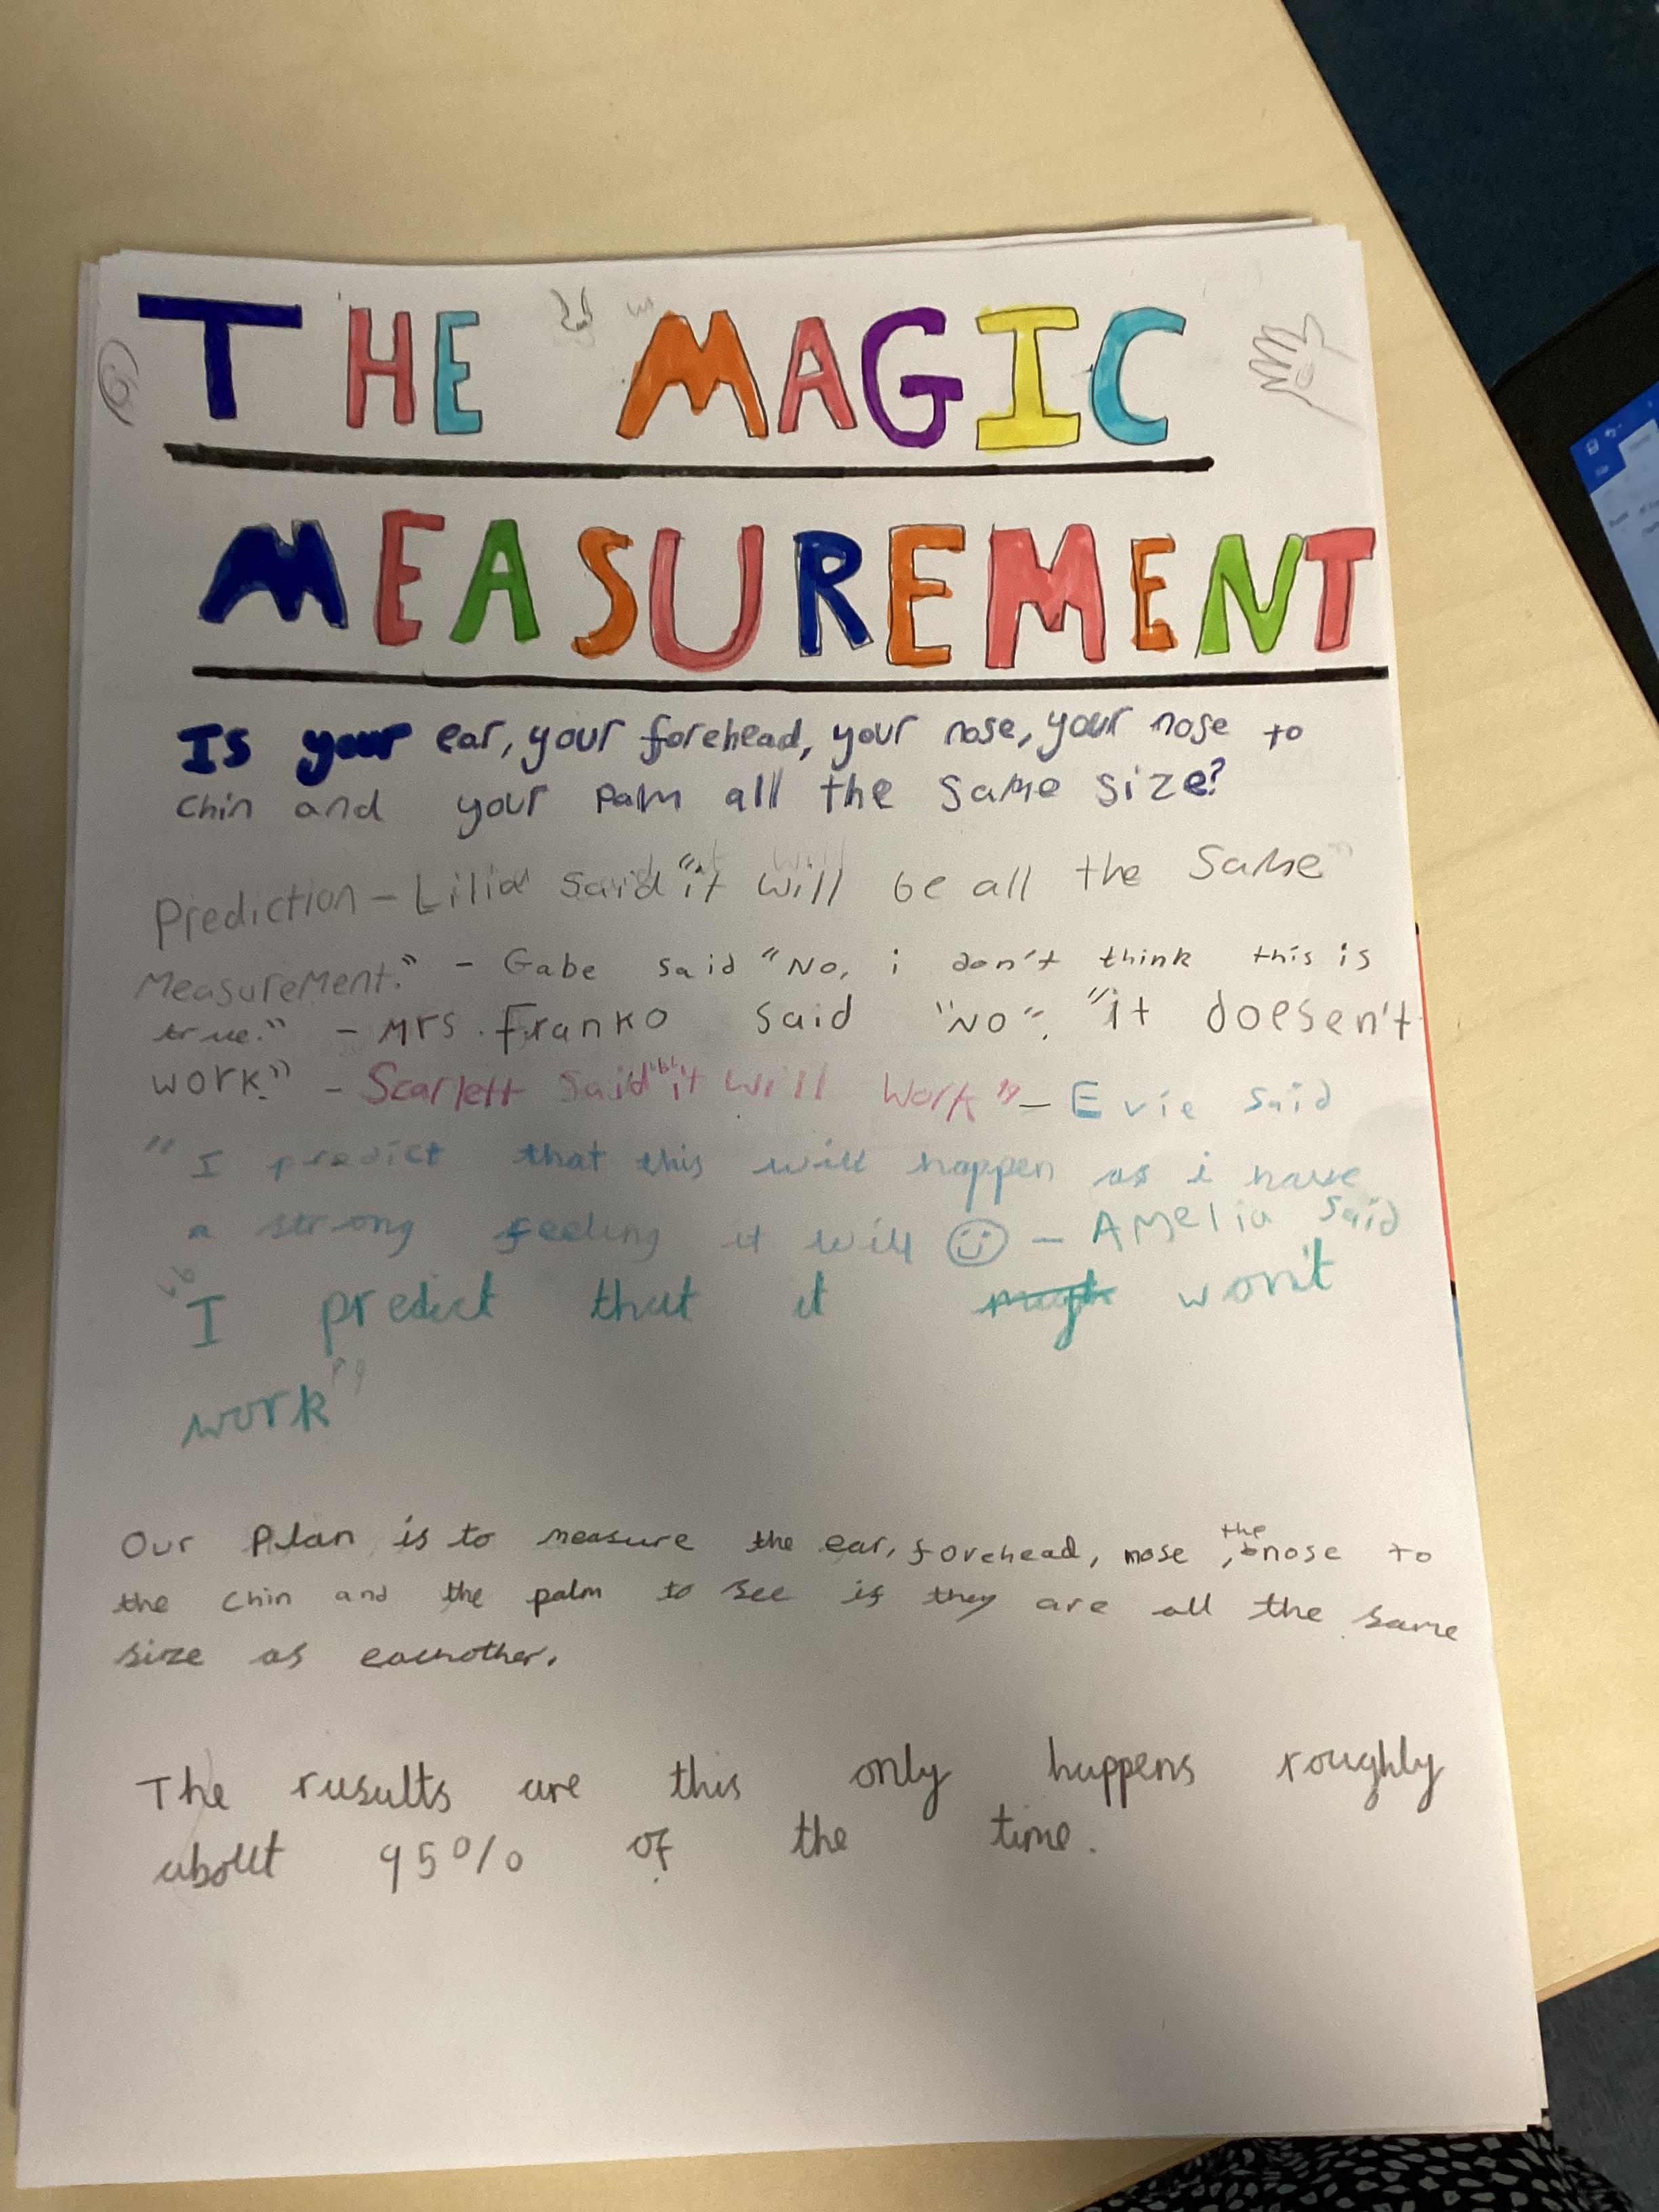 THE MAGIC
MEASUREMENT
Is your ear, your forehead, your nose, your nose to
chin and your palm all the same size?
Prediction - Lilia said "it will be all the same
measurement." - Gabe said "No, i don't think this is
true." - Mrs. Franko said "NO". "it doesen't
work." - Scarlett said "it will work" - Evie said
"I predict that this will happen as i have
a strong feeling it will ☺ - Amelia said
"I predict that it won't
work"
Our Plan is to measure the ear, forehead, nose, the nose to
the chin and the palm to see if they are all the same
size as eachother.
The rusults are this only happens roughly
about 95% of the time.